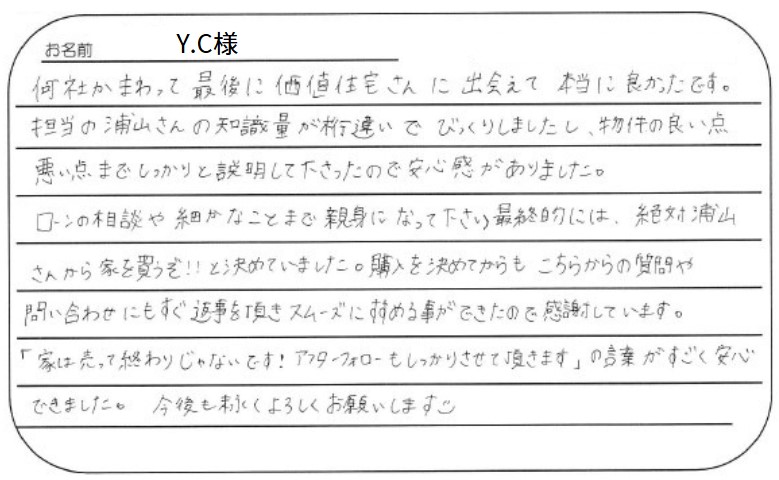 お名前 Y.C様
何社かまわって最後に価値住宅さんに出会えて本当に良かったです。
担当の浦山さんの知識量が桁違いでびっくりしましたし、物件の良い点
悪い点までしっかりと説明して下さったので安心感がありました。
ローンの相談や細かなことまで親身になって下さり最終的には、絶対浦山
さんから家を買うぞ!!と決めていました。購入を決めてからもこちらからの質問や
問い合わせにもすぐ返事を頂きスムーズに進める事ができたので感謝しています。
「家は売って終わりじゃないです！アフターフォローもしっかりさせて頂きます」の言葉がすごく安心
できました。 今後も末永くよろしくお願いします